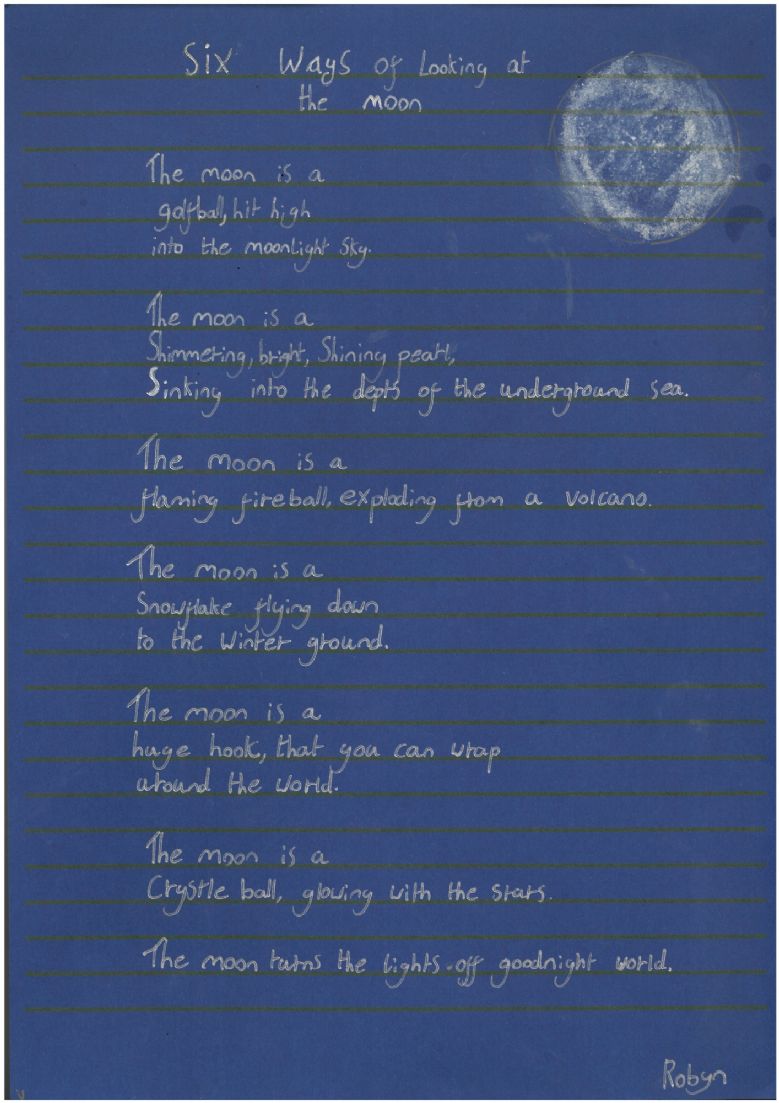 Six Ways of Looking at
the moon
The moon is a
golfball, hit high
into the moonlight sky.
The moon is a
Shimmering, bright, Shining pearl,
Sinking into the depts of the underground sea.
The moon is a
flaming fireball, exploding from a volcano.
The moon is a
Snowflake flying down
to the Winter ground.
The moon is a
huge hook, that you can wrap
around the world.
The moon is a
Crystle ball, glowing with the stars.
The moon turns the lights-off goodnight world.
Robyn